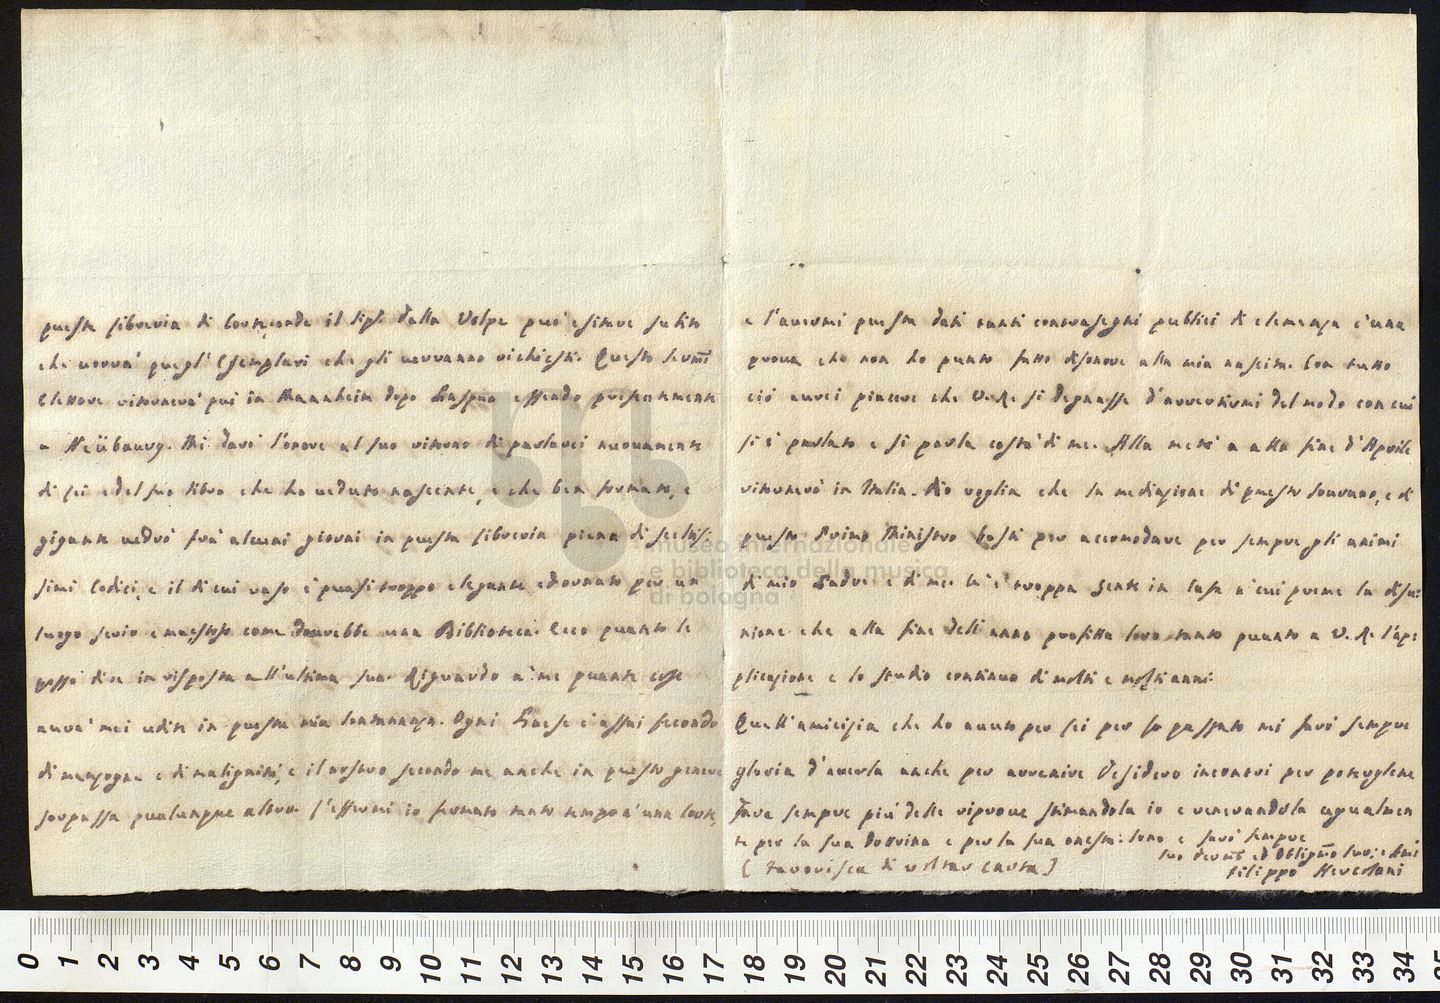 questa libreria di Corte, onde il Sigr. dalla Volpe può esitare subito
che vorrà quegl'Esemplari che gli verranno richiesti. Questo Sermo
Elettore ritornerà qui in Mannheim dopo Pasqua essendo presentemente
a Neübourg. Mi darò l'onore al suo ritorno di parlarci nuovamente
di lei e del suo libro che ho veduto nascente, e che ben formato, e
gigante vedrò frà alcuni giorni in questa libreria piena di sceltis:
simi Codici, e il di cui vaso è quasi troppo elegante ed ornato per un
luogo serio e maestoso come dovrebbe una Biblioteca. Ecco quanto le
posso dire in risposta all'ultima sua. Riguardo a me quante cose
avrà mai udite in questa mia lontananza. Ogni Paese è assai fecondo
di menzogne e di malignità, e il nostro secondo me anche in questo genere
sorpassa qualunque altro. l'essermi io fermato tanto tempo a una Corte,
e l'avermi questa dati tanti contrasegni publici di clemenza è una
prova che non ho punto fatto disonore alla mia nascita. Con tutto
ciò avrei piacere che V. R. si degnasse d'avvertirmi del modo con cui
si è parlato e si parla costà di me. Alla metà o alla fine d'Aprile
ritornerò in Italia. Dio voglia che la mediazione di questo Sovrano, e di
questo Primo Ministro basti per accomodare per sempre gli animi
di mio Padre e di me. Vi è troppa gente in Casa a cui preme la disu:
nione che alla fine dell'anno profitta loro tanto quanto a V. R. l'ap:
plicazione e lo studio continuo di molti e molti anni.
Quell'amicizia che ho avuto per lei per lo passato mi farò sempre
gloria d'averla anche per avvenire. Desidero incontri per potergliene
dare sempre più delle riprove stimandola io e venerandola egualmen
te per la sua dottrina e per la sua onestà: sono e sarò sempre
suo devmo ed obbligmo Serv: e Ami
Filippo Hercolani
( Favorisca di voltar carta )
museo internazionale
e biblioteca della musica
di bologna
0 1 2 3 4 5 6 7 8 9 10 11 12 13 14 15 16 17 18 19 20 21 22 23 24 25 26 27 28 29 30 31 32 33 34 35